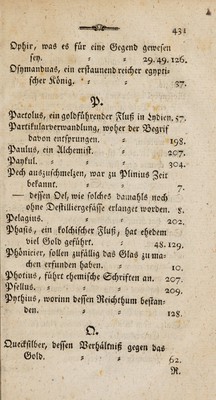 431
Ophir, was es für eine Gegend gewesen
sey. 29. 49. 126.
Osymanduas, ein erstaunend reicher egypti-
scher König. 37.
P.
Pactolus, ein goldführender Fluß in Lydien. 57.
Partikularverwandlung, woher der Begrif
davon entsprungen. 198.
Paulus, ein Alchemist. 207.
Paykul. 304.
Pech auszuschmelzen, war zu Plinius Zeit
bekannt. 7.
— dessen Oel, wie solches damahls noch
ohne Destilliergefässe erlanget worden. 8.
Pelagius. 202.
Phasis, ein kolchischer Fluß, hat ehedem
viel Gold geführt. 48. 129.
Phönicier, sollen zufällig das Glas zu ma-
chen erfunden haben. 10.
Photius, führt chemische Schriften an. 207.
Psellus. 209.
Pythius, worinn dessen Reichthum bestan-
den. 128.
Q.
Quecksilber, dessen Verhältniß gegen das
Gold. 62.
R.